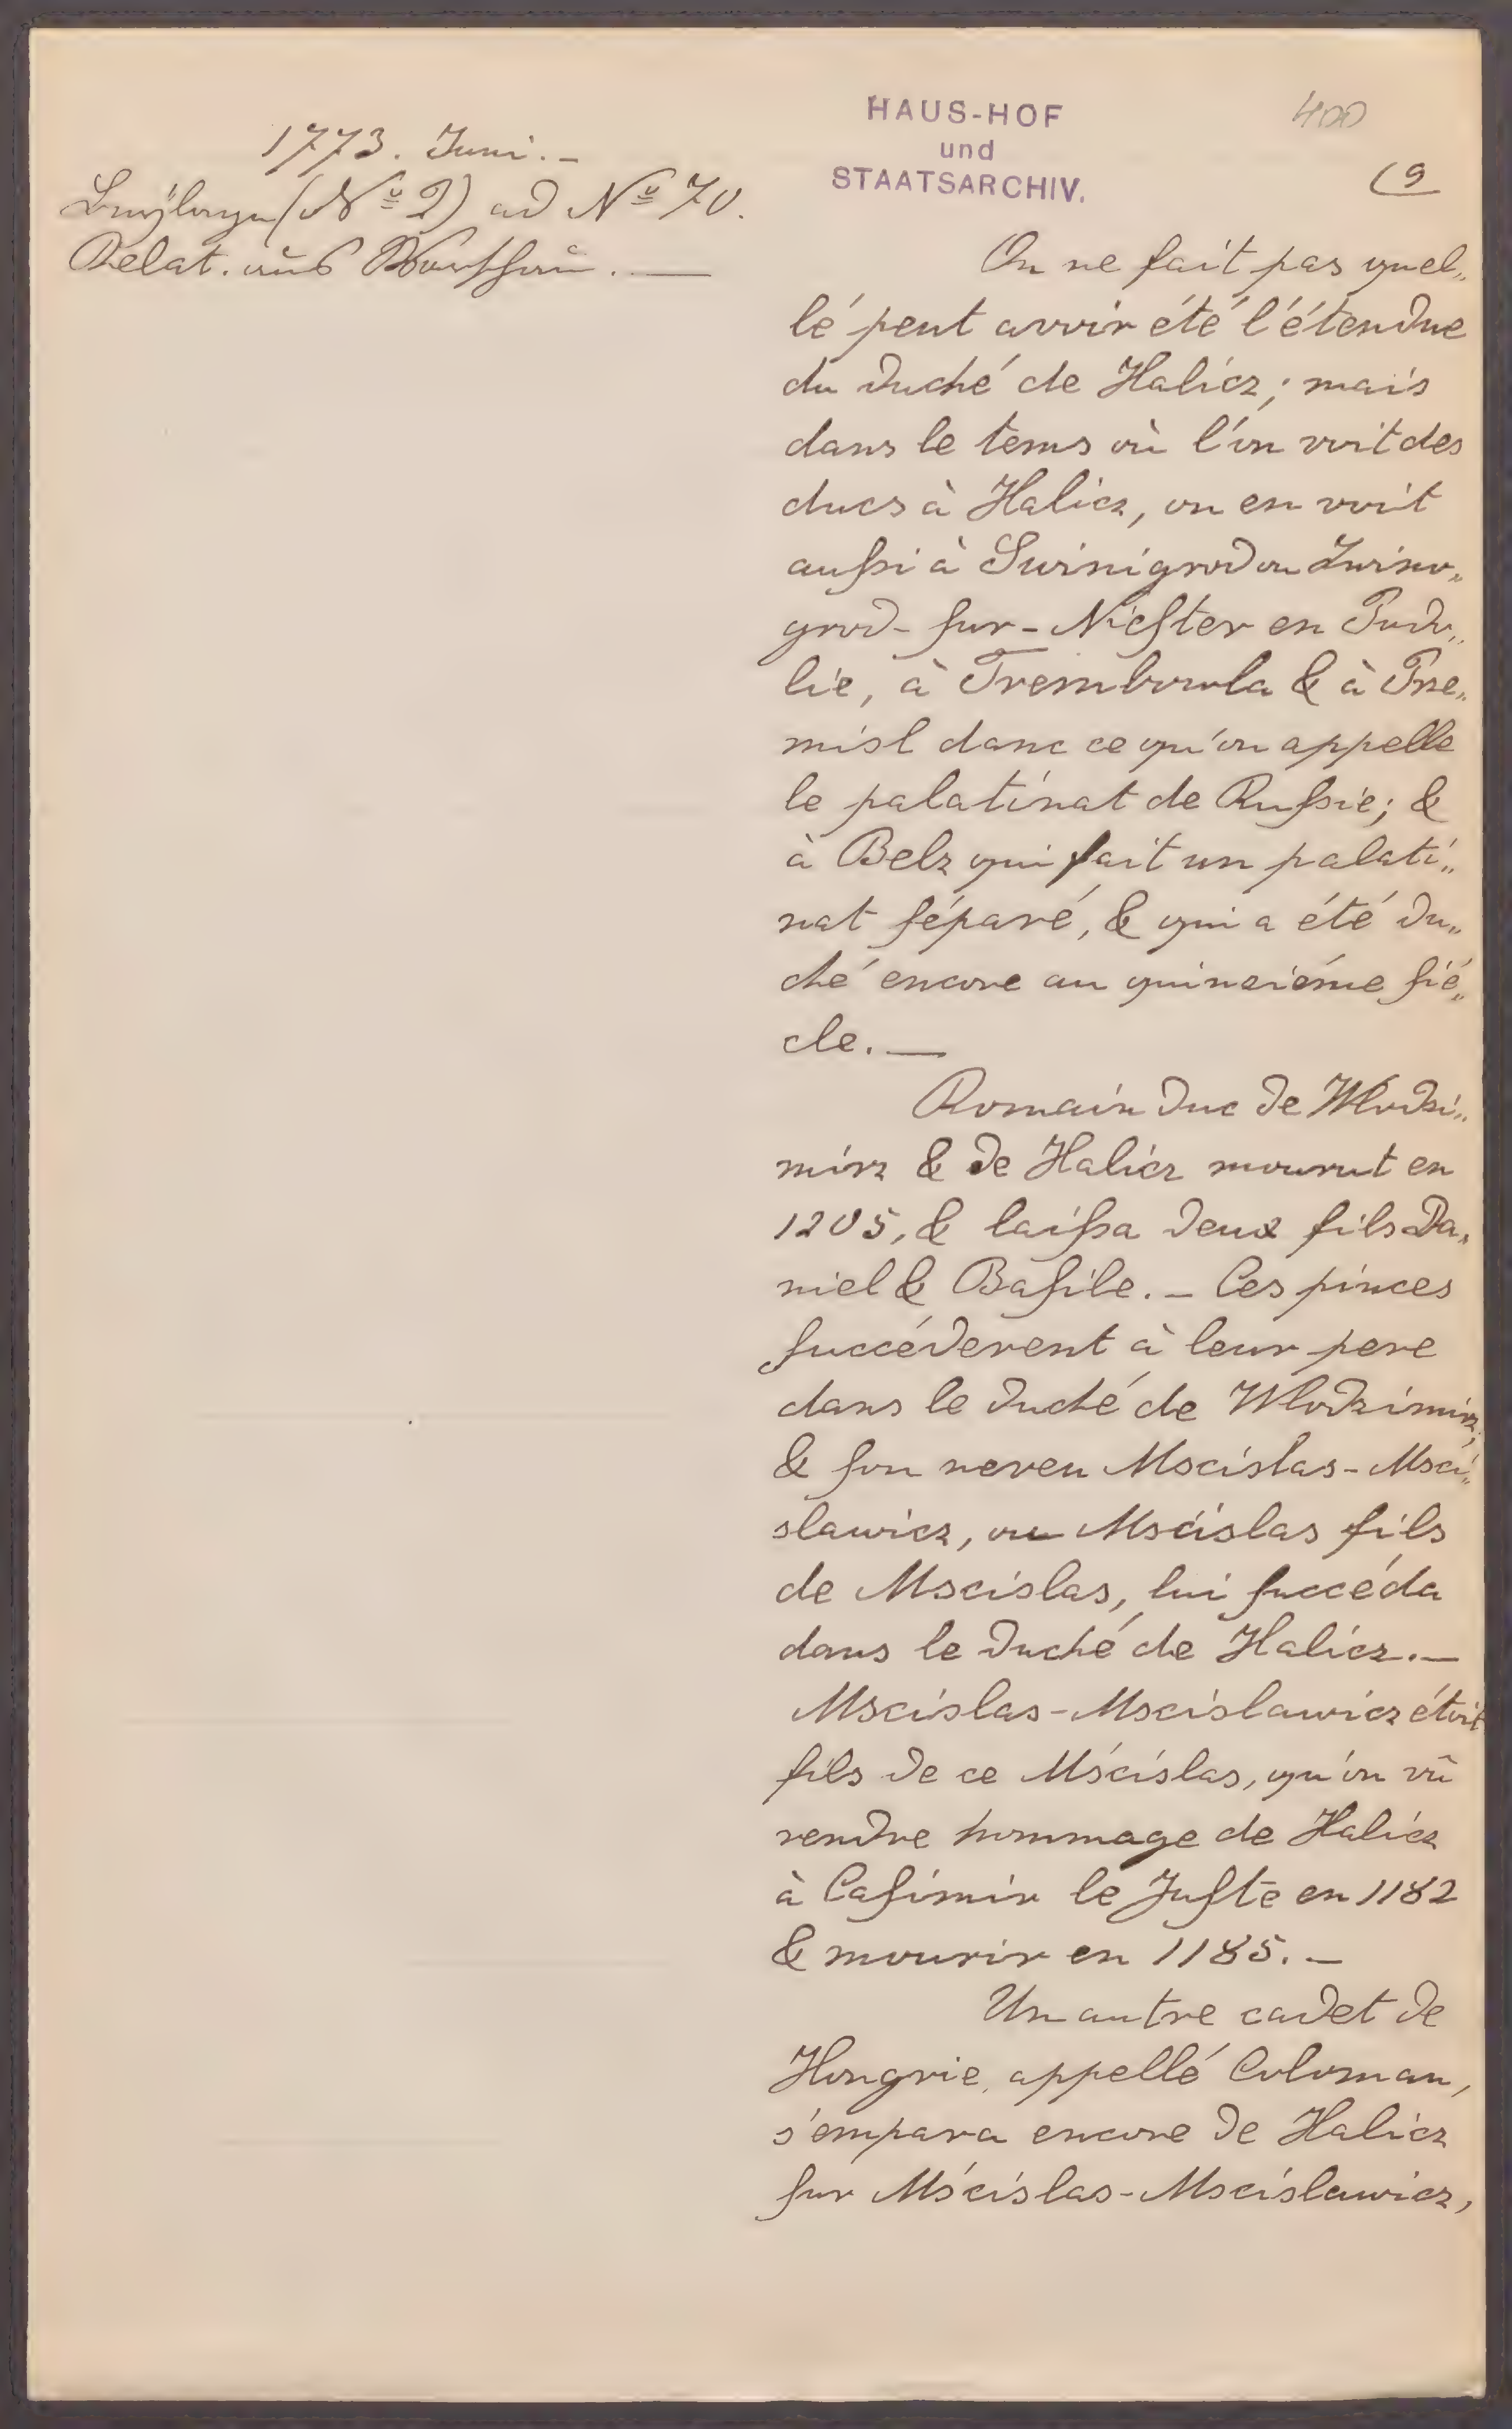 1773. Juni. –
Beylage (Nº 2) ad Nº 70.
Relat. aus Warschau. —
HAUS-HOF
und
STAATSARCHIV.
400
(9
On ne ſait pas quel„
lé peut avoir été l'étendue
du duché de Halicz; mais
dans le tems où l'on voit des
ducs à Halicz, on en voit
auſsi à Swinigrod ou Zwino„
grod-ſur-Nieſter en Podo„
lie, à Trembowla & à Prze„
misl danc ce qu'on appelle
le palatinat de Ruſsie; &
à Belz qui fait un palati„
nat ſéparé, & qui a été du„
ché encore au quinzième ſié„
cle. —
Romain duc de Wlodzi„
mirz & de Halicz mourut en
1205, & laiſsa deux fils Da„
niel & Baſile. – Ces pinces
ſuccéderent à leur pere
dans le duché de Wlodzimirz,
& ſon neveu Mscislas-Msci„
slawicz, ou Mscislas fils
de Mscislas, lui ſuccéda
dans le duché de Halicz. —
Mscislas-Mscislawicz étoit
fils de ce Mścislas, qu'on vû
rendre hommage de Halicz
à Caſimir le Juſte en 1182
& mourir en 1185. –
Un autre cadet de
Hongrie, appellé Coloman,
s'empara encore de Halicz
ſur Mścislas-Mscislawicz,